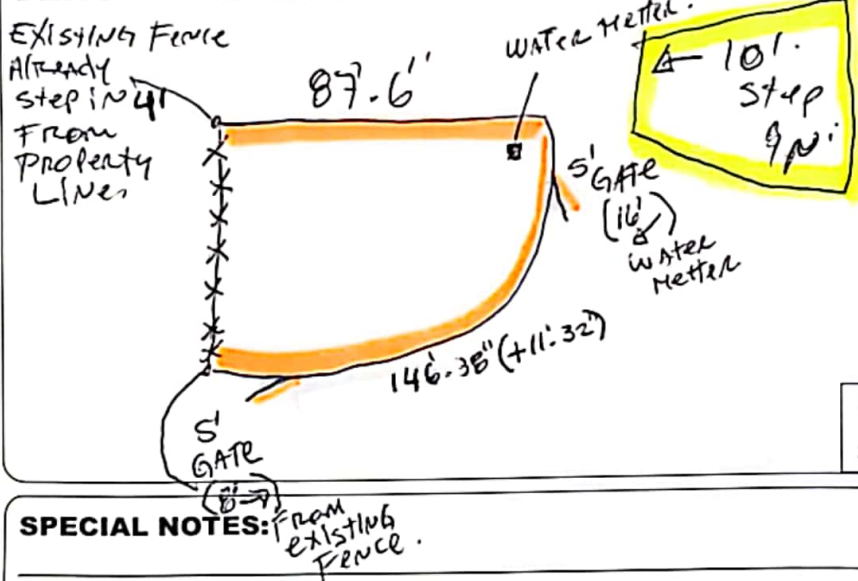 EXISTING FENCE
Already
Step in 4'
From
Property
Lines
87'.6''
WATER Metter.
← 10'.
Step
in
5'
GATE
(16')
WATER
Metter
146'.38" (+11'.32")
5'
GATE
(8'→)
SPECIAL NOTES:
FROM
existing
Fence.